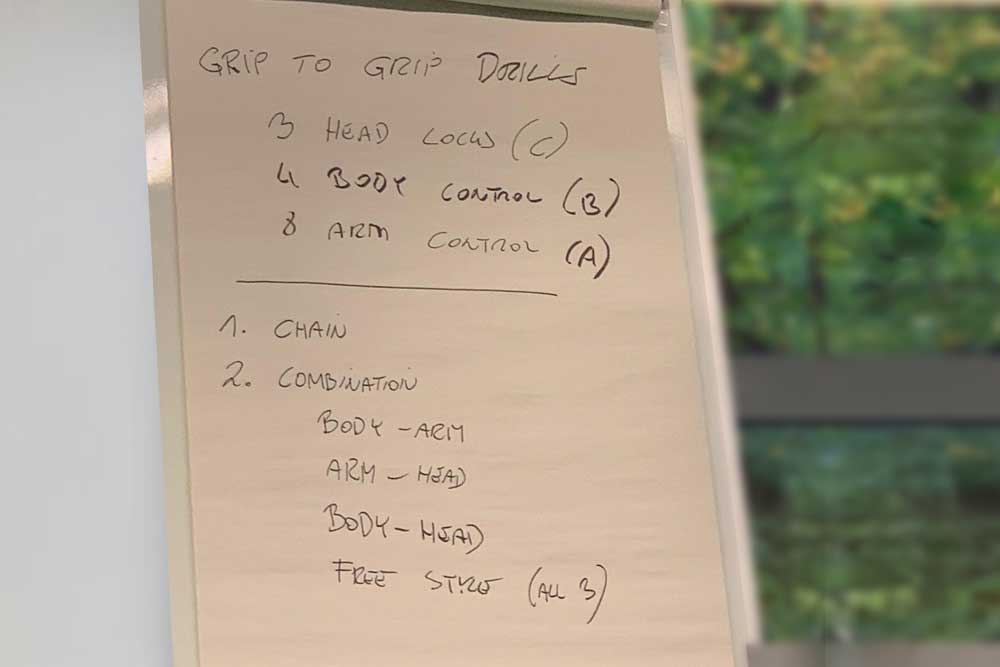 GRIP TO GRIP DRILLS
3 HEAD LOCKS (C)
4 BODY CONTROL (B)
8 ARM CONTROL (A)
1. CHAIN
2. COMBINATION
BODY - ARM
ARM - HEAD
BODY - HEAD
FREE STYLE (ALL 3)